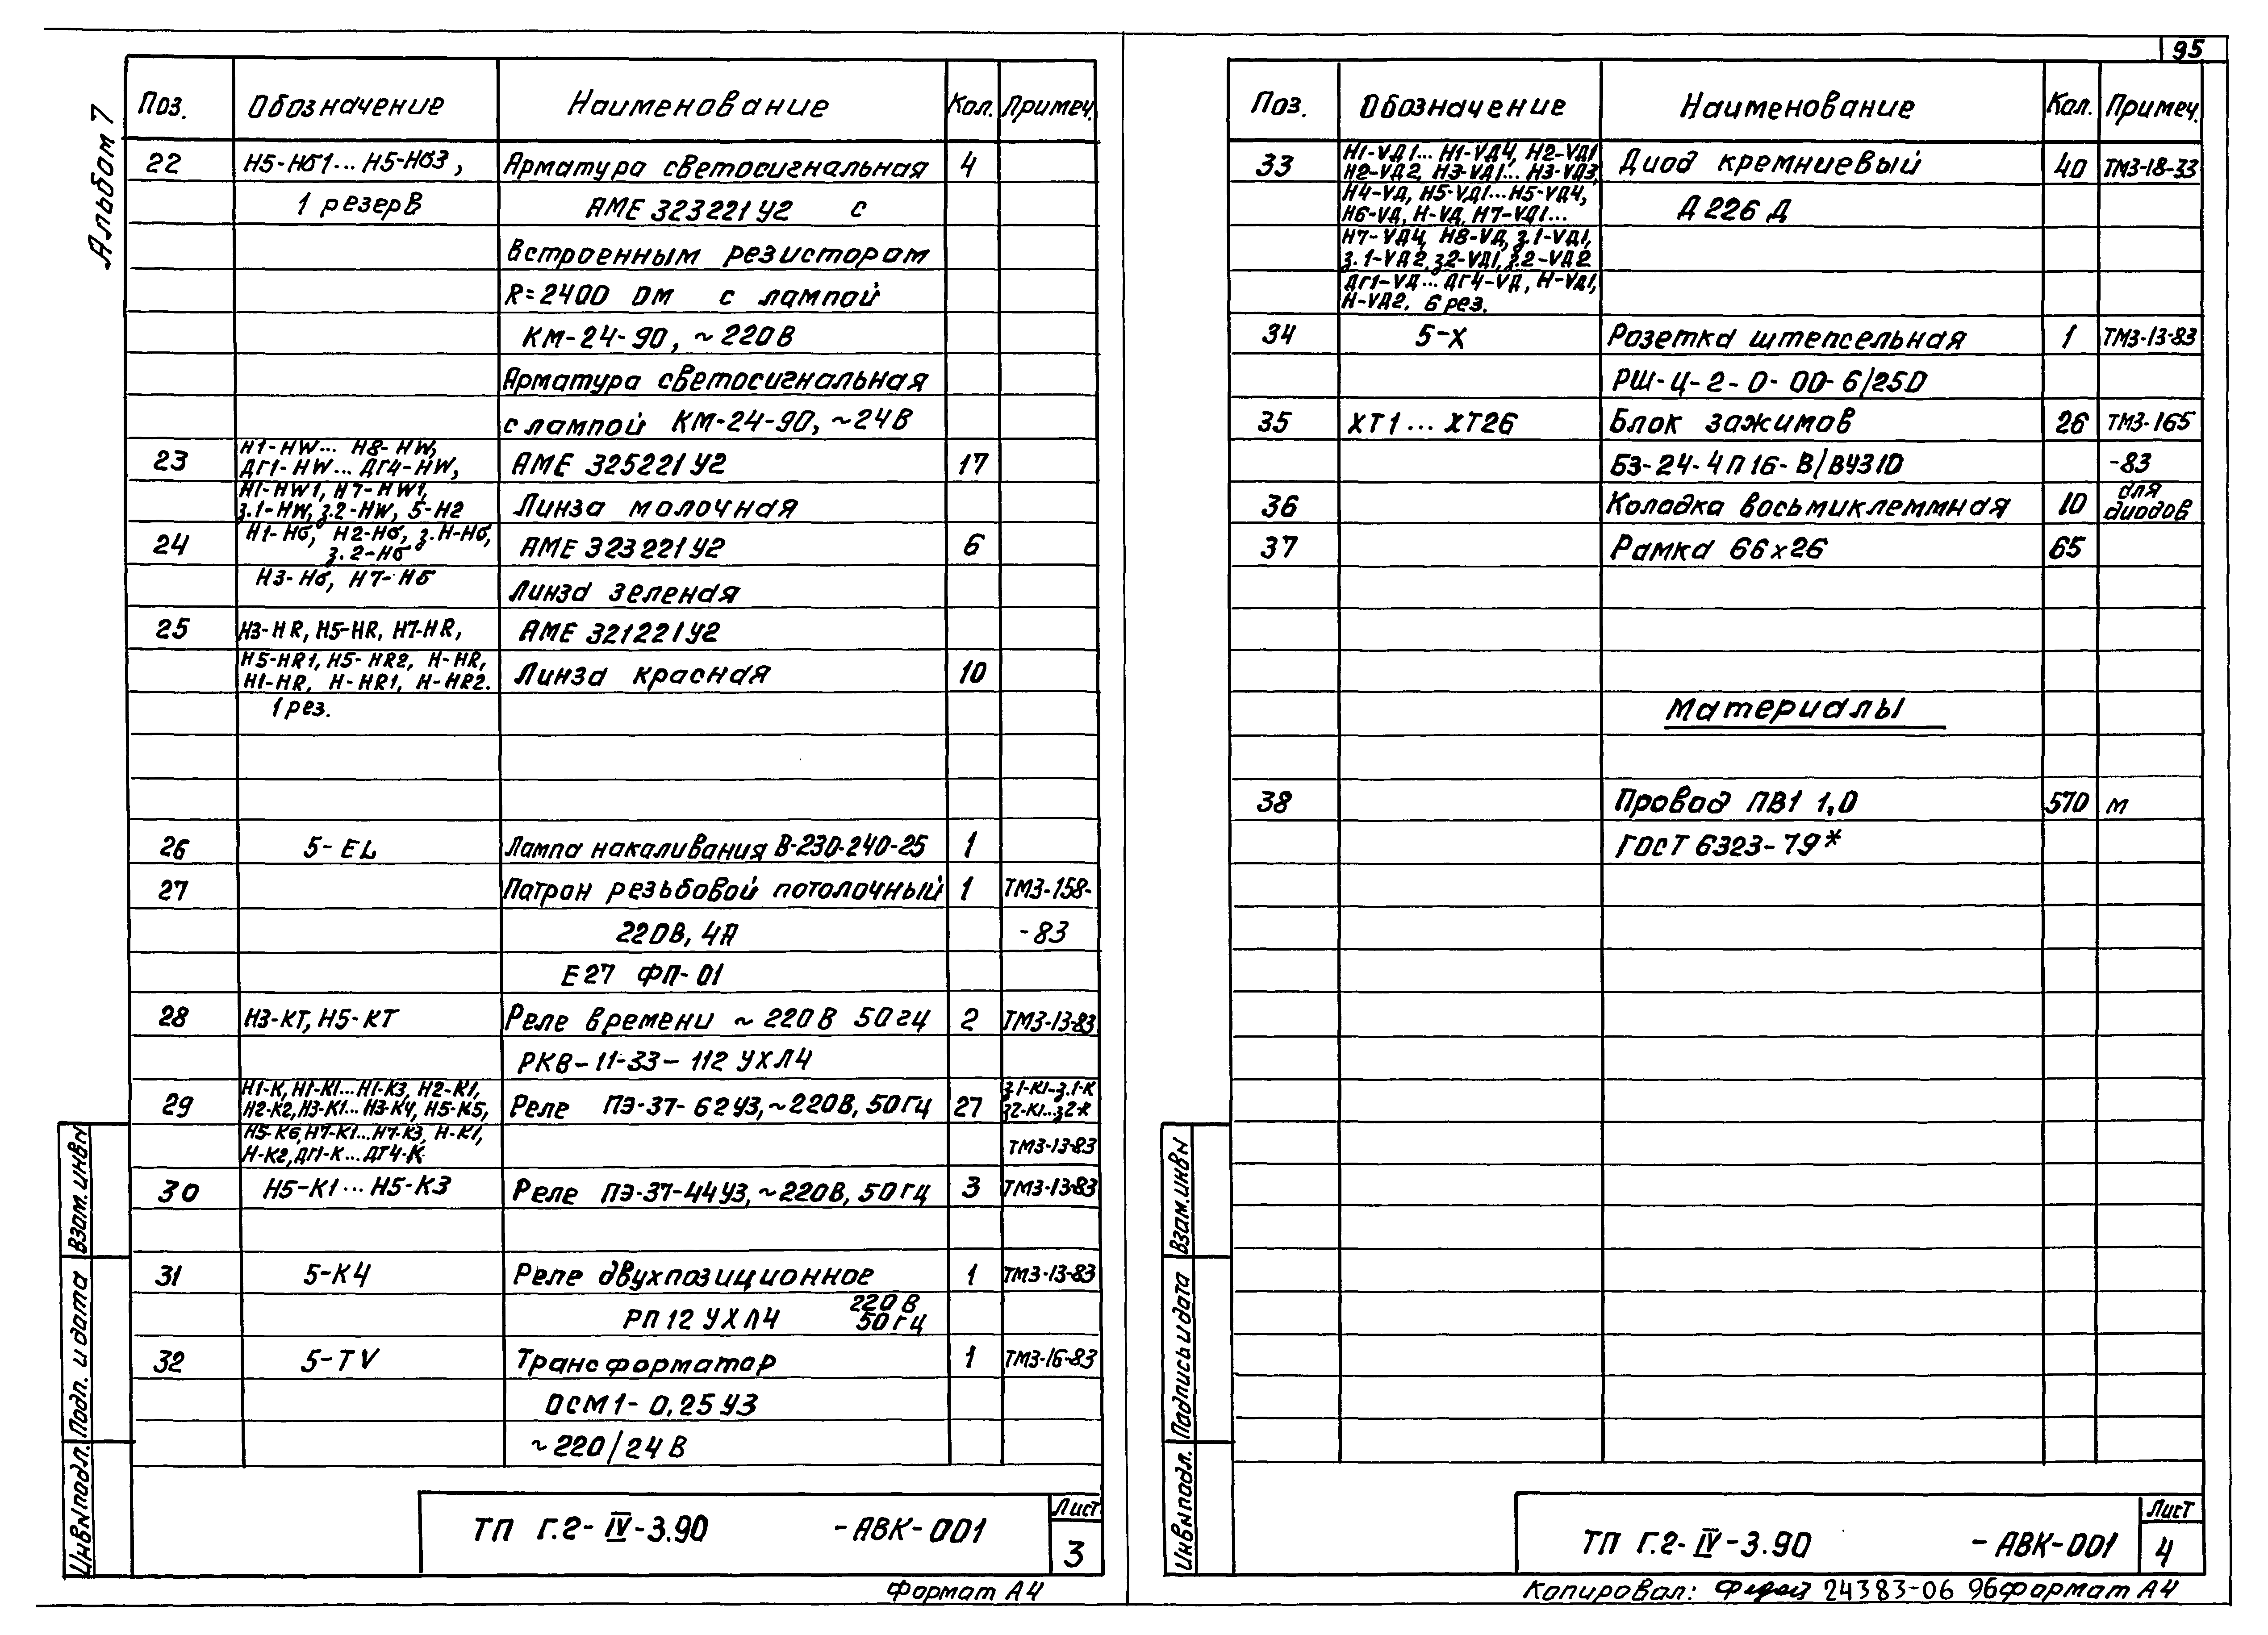 95
Альбом 7
Поз. Обозначение Наименование Кол. Примеч.
22 Н5-Нб1... Н5-Нб3, Арматура светосигнальная 4
1 резерв АМЕ 323221У2 с
встроенным резистором
R=2400 Ом с лампой
КМ-24-90, ~220В
Арматура светосигнальная
с лампой КМ-24-90, ~24В
Н1-HW... Н8-HW,
23 ДГ1-HW... ДГ4-HW, АМЕ 325221У2 17
Н1-HW1, Н7-HW1,
з.1-HW, з.2-HW, 5-Н2 Линза молочная
24 Н1-Нб, Н2-Нб, з.Н-Нб, АМЕ 323221У2 6
з.2-Нб
Н3-Нб, Н7-Нб Линза зеленая
25 Н3-HR, Н5-HR, Н7-HR, АМЕ 321221У2
Н5-HR1, Н5-HR2, Н-HR, Линза красная 10
Н1-HR, Н-HR1, Н-HR2.
1 рез.
26 5-EL Лампа накаливания В-230-240-25 1
27 Патрон резьбовой потолочный 1 ТМ3-158-
220В, 4А -83
Е27 ФП-01
28 Н3-КТ, Н5-КТ Реле времени ~220В 50гц 2 ТМ3-13-83
РКВ-11-33-112 УХЛ4
Н1-К, Н1-К1...Н1-К3, Н2-К1, з.1-К1-з.1-К
29 Н2-К2, Н3-К1... Н3-К4, Н5-К5, Реле ПЭ-37-62У3, ~220В, 50Гц 27 з2-К1...з2-К
Н5-К6, Н7-К1...Н7-К3, Н-К1, ТМ3-13-83
Н-К2, ДГ1-К...ДГ4-К
30 Н5-К1...Н5-К3 Реле ПЭ-37-44У3, ~220В, 50Гц 3 ТМ3-13-83
31 5-К4 Реле двухпозиционное 1 ТМ3-13-83
РП12 УХЛ4 220В
50Гц
32 5-TV Трансформатор 1 ТМ3-16-83
ОСМ1-0,25У3
~220/24В
Взам.инвN
Подп. и дата
ИнвNподл.
ТП Г.2-IV-3.90 -АВК-001
Лист
3
Формат А4
Поз. Обозначение Наименование Кол. Примеч.
Н1-VД1... Н1-VД4, Н2-VД1
33 Н2-VД2, Н3-VД1... Н3-VД3, Диод кремниевый 40 ТМ3-18-33
Н4-VД, Н5-VД1...Н5-VД4,
Н6-VД, Н-VД, Н7-VД1... Д226Д
Н7-VД4, Н8-VД, з.1-VД1,
з.1-VД2, з2-VД1, з.2-VД2
ДГ1-VД...ДГ4-VД, Н-VД1,
Н-VД2. 6 рез.
34 5-Х Розетка штепсельная 1 ТМ3-13-83
РШ-Ц-2-0-00-6/250
35 ХТ1...ХТ26 Блок зажимов 26 ТМ3-165
БЗ-24-4П16-В/ВУ310 -83
36 Колодка восьмиклеммная 10 для
диодов
37 Рамка 66х26 65
Материалы
38 Провод ПВ1 1,0 570 м
ГОСТ 6323-79*
Взам.инвN
Подпись и дата
ИнвNподл.
ТП Г.2-IV-3.90 -АВК-001
Лист
4
Копировал: 24383-06 96 формат А4